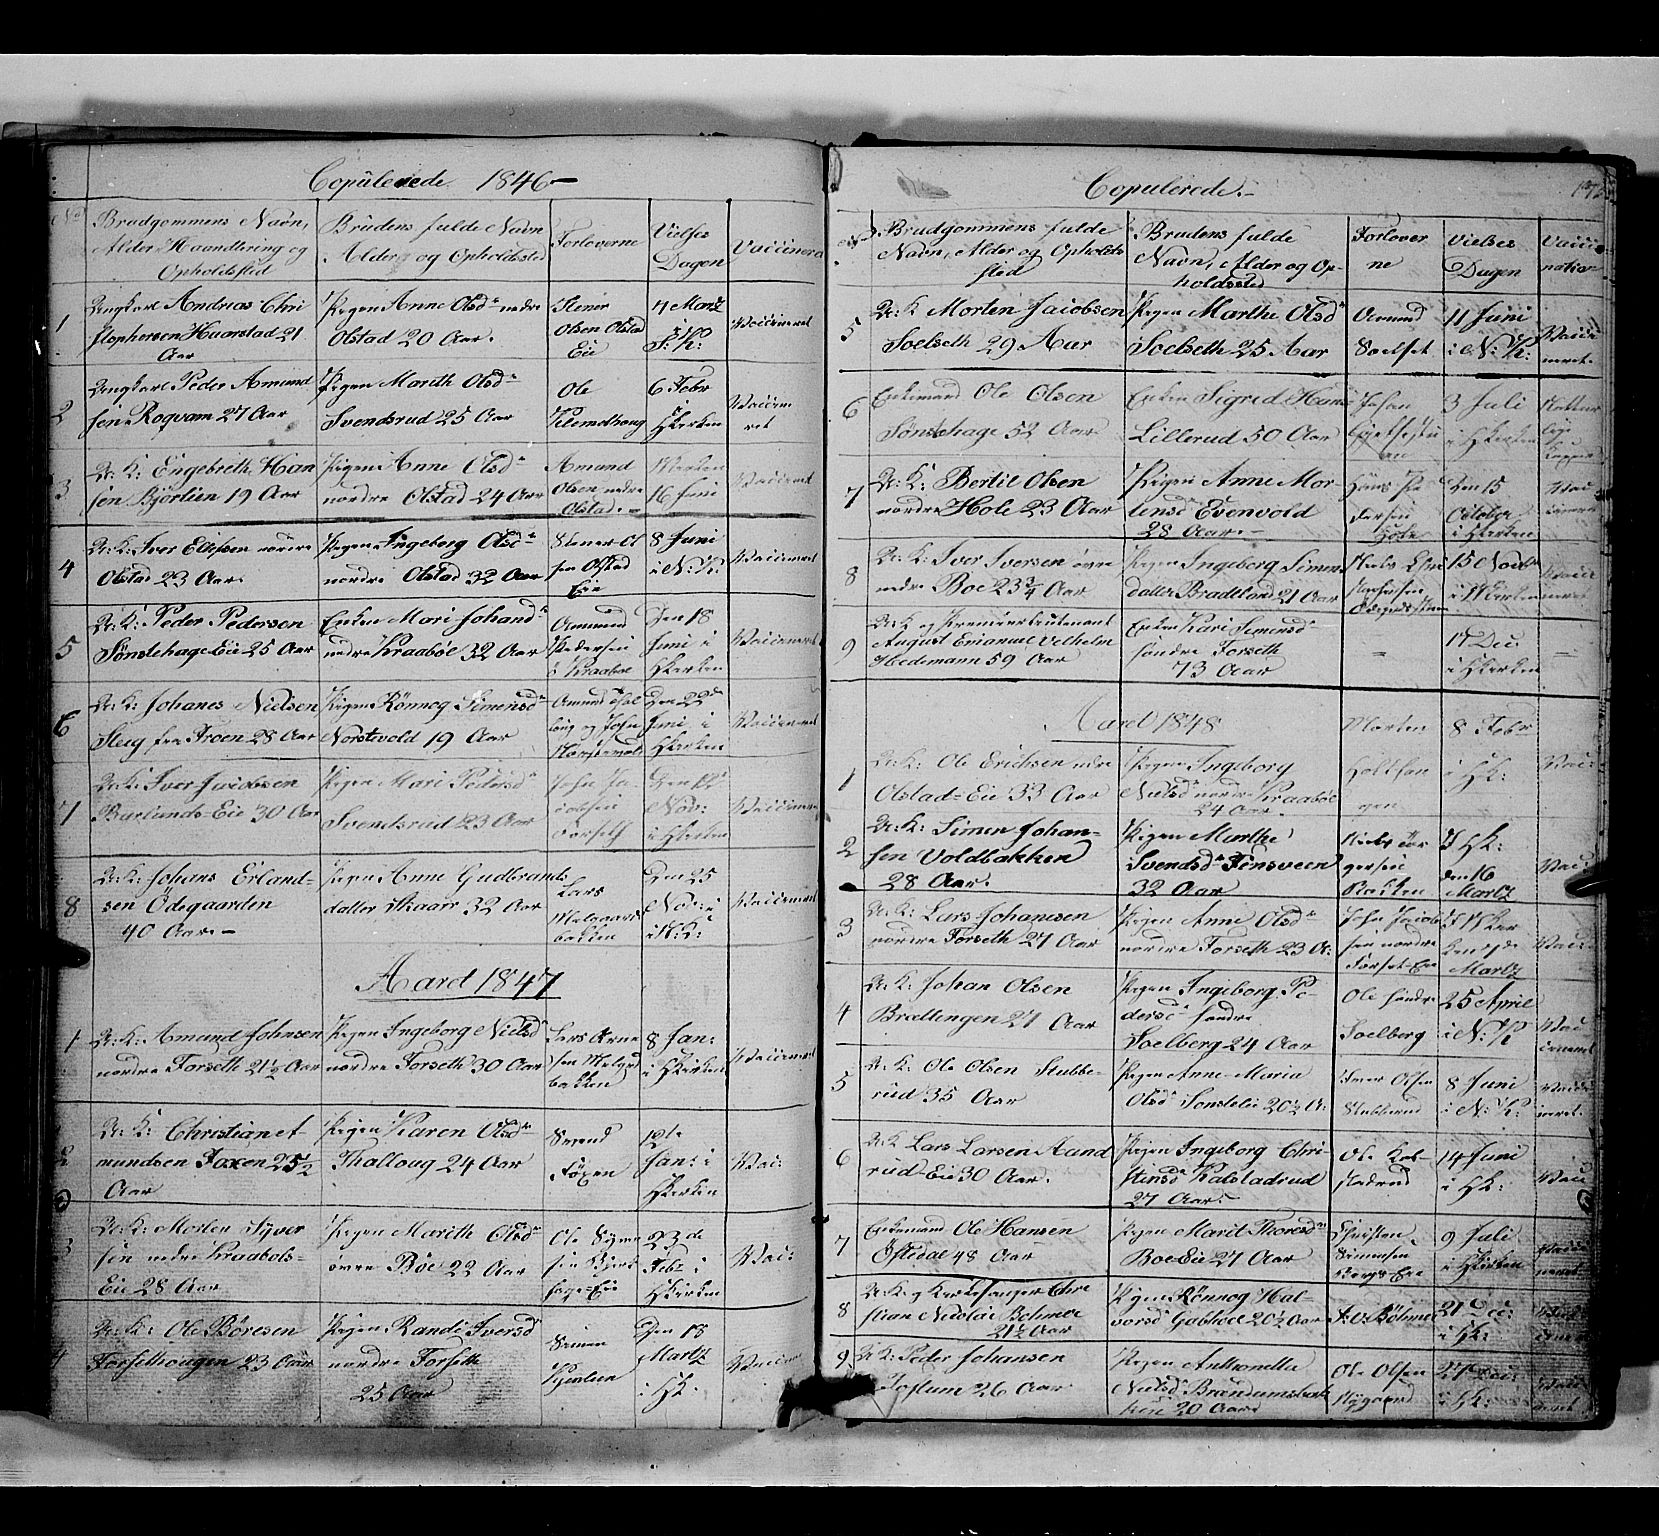 Copulerede 1846
No
Brudgommens Navn,
Alder, Haandtering og
Opholdssted
Brudens fulde Navn
Alder og Opholdssted
Forloverne
Vielses
Dagen
Vaccinera
1
Ungkarl Andreas Chri
stophersen Haarstad 21
Aar
Pigen Anne Olsdr nedre
Olstad 20 Aar.
Stener
Olsen Olstad
Eie
Martz
Vaccineret
2
Ungkarl Peder Amund
sen Rogvam 27 Aar
Pigen Marith Olsdr
Svendsrud 25 Aar
Ole
6 Febr
i
HKirken
Vaccine
ret
3
U: K: Engebreth Han
sen Bjørlien 19 Aar
Pigen Anne Olsdr
nordre Olstad 24 Aar
Amund
Olsen nedre
Olstad.
16 Juni
Vaccineret
4
U: K: Iver Ellefsen nordre
Olstad 23 Aar.
Pigen Ingeborg Olsdr
nordre Olstad 32 Aar
Stener Ol
sen Olstad
Eie
8 Juni
i N: K:
Vaccineret
5
U: K: Peder Pedersen
Sønstehage Eie 25 Aar
Enken Mari Johansdr
nedre Kraabøl 32 Aar
Amund
Pedersen
Kraabøl
Den 18
Juni i
HKirken
Vaccineret
6
U: K: Johanes Nielsen
Steig fra Froen 28 Aar
Pigen Rönnog Simensdr
Norstevold 19 Aar
Den 22de
Juni i
HKirken
Vaccineret
7
U: K: Iver Jacobsen
Barlunds-Eie 30 Aar
Pigen Mari Pedersdr
Svendsrud 23 Aar
John Ja-
cobsen
Forseth
Nov:
i HKirken
Vaccineret
8
U: K: Johans Erland-
sen Ödegaarden
40 Aar.
Pigen Anne Gudbrands
datter Skaar 32 Aar
Lars
bakken
Den 25
Nov: i
N: K:
Vaccineret
Aaret 1847
1
U: K: Amund Johnsen
nordre Forseth 21½ Aar
Pigen Ingeborg Nielsdr
nordre Forseth 30 Aar
Lars Arne
bakken
8 Jan:
i HKirken
Vaccineret
2
U: K: Christian A-
mundsen Foxen 25½
Aar
Pigen Karen Olsdr
Thalloug 24 Aar
12te
Jan: i
HKirken
Vac:
3
U: K: Morten Syver
sen nedre Kraabøls-
Eie 28 Aar
Pigen Marith Olsdr
øvre Böe 22 Aar
Ole
23de
Febr i
HKirken
Vac:
4
U: K: Ole Böresen
Forsethougen 23 Aar
Pigen Randi Iversdr
nordre Forseth
25 Aar
Simen
Den 18
Martz
i HK.
Vaccine
Copulerede.
172
No
Brudgommens fulde
Navn, Alder og Opholds
sted
Brudens fulde
Navn, Alder og Op-
holdssted
Forlover
ne
Vielses
Dagen
Vacci
nation
5
U: K: Morten Jacobsen
Soelseth 29 Aar
Pigen Marthe Olsdr
Soelseth 25 Aar
Amund
Soelset
11 Juni
i N: K:
Vacci
neret.
6
Enkemand Ole Olsen
Sønstehage 52 Aar
Enken Sigrid Hans
Lillerud 50 Aar
Johan
3 Juli
i HKirken
7
U: K: Bertil Olsen
nordre Hole 23 Aar
Pigen Anne Mor
tensd Evenvold
28 Aar.
Hans Pe
dersen
Hole
Den 15
October
i HKirken
8
U: K: Iver Iversen øvre
nedre Boe 23¾ Aar
Pigen Ingeborg Simens
datter Bradtlend 21 Aar
15 Novbr
9
U: K og Premierlieutenant
August Emanuel Velhelm
Hedemann 59 Aar
Enken Kari Simensdr
søndre Forseth
73 Aar
Dec
i HKirken
Aaret 1848
1
U: K: Ole Erichsen nedre
Olstad-Eie 33 Aar
Pigen Ingeborg
Nielsd nordre Kraabøl
24 Aar.
Morten
8 Febr
i HK:
Vac:
2
U: K: Simen Johan-
sen Voldbakken
28 Aar.
Pigen Marthe
Svendsdr Jensveen
32 Aar
Bakken
HK:
den 16
Martz
Vac:
3
U: K: Lars Johannesen
nordre Forseth 27 Aar
Pigen Anne Olsdr
nordre Forseth 23 A:
John Jacob
sen nordre
Forset-Eie
Martz
Vac:
4
U: K: Johan Olsen
Brættengen 27 Aar
Pigen Ingeborg Pe
dersdr søndre
Soelberg 24 Aar
Ole søndre
Soelberg
25 April
i N: K:
Vac
cineret
5
U: K: Ole Olsen Stubbe-
rud 35 Aar
Pigen Anne Maria
Olsdr Sonstelie 20½ A:
Olsen
Stubberud
8 Juni
i N: K:
Vacci
neret.
6
U: K Lars Larsen Aand
rud-Eie 30 Aar.
Pigen Ingeborg Chri
stensdr Kalstadrud
27 Aar.
Ole Kal-
stadrud
14 Juni
i HK:
Vac
7
Enkemand Ole Hansen
Östedal 48 Aar
Pigen Marit Thorsdr
Boe Eie 27 Aar
Christen
Simensen
9 Juli
i HKirken
Vacci
neret
8
U: K: og Kirkesanger Chri
stian Nicolai Bohmer
21½ Aar
Pigen Rönnog Hal-
vorsd Gobhol 20½ Aar
Böhmer
21 Dec:
i HK:
9
U: K: Peder Johansen
Toftum 26 Aar
Pigen Anthonetta
Nielsdr Brandumsbak
ken 20 Aar
Ole Olsen
27 Dec:
i HK: